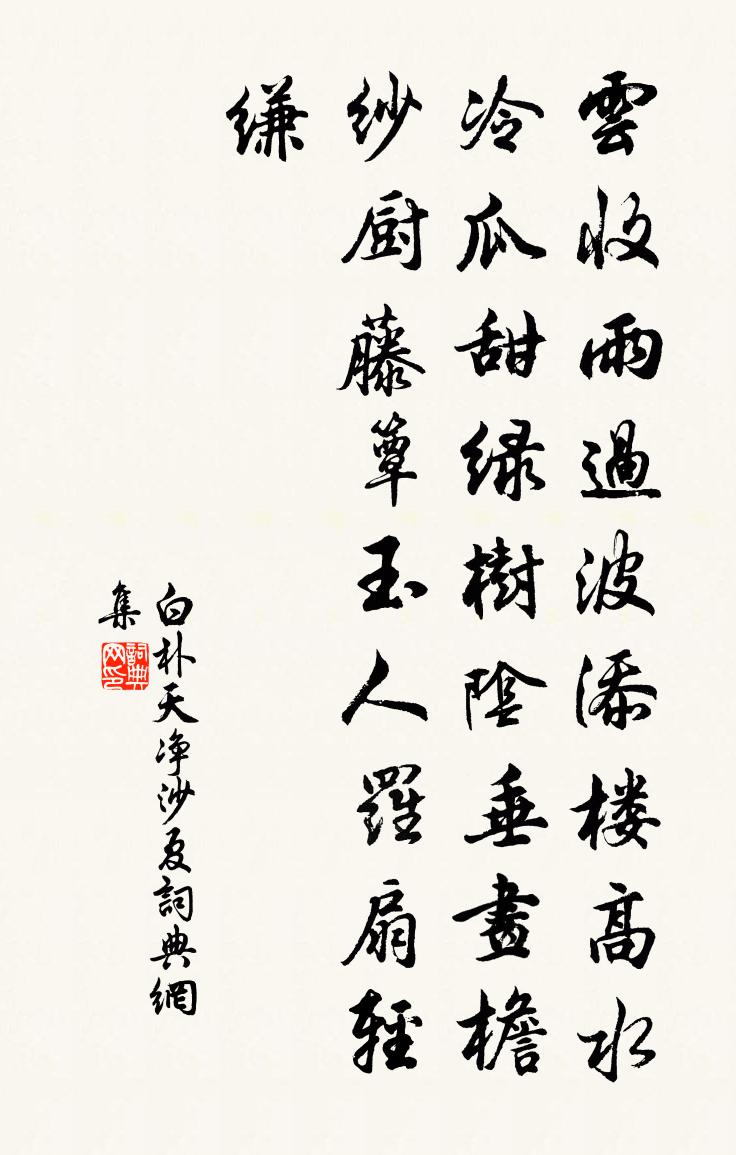 雲收雨過波添楼高水
冷瓜甜緑樹陰垂畫檐
紗厨藤簟玉人羅扇輕
縑
白朴天净沙夏詞典網
集
詞典
网印